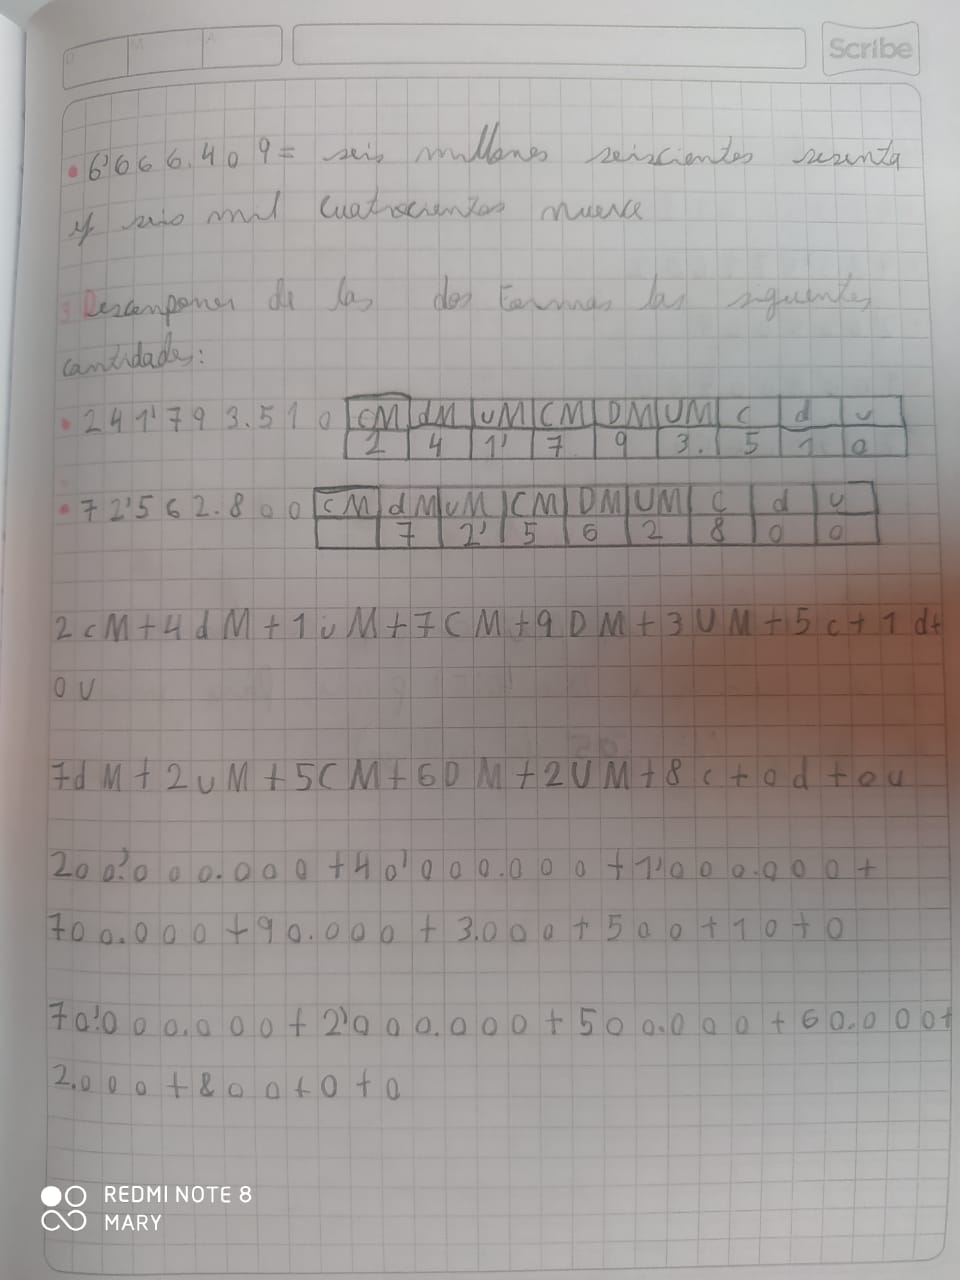 D M A
Scribe
• 6'666.409 = seis millones seiscientos sesenta
y seis mil cuatrocientos nueve
3 Descomponer de las dos formas las siguientes
cantidades:
• 241'793.510 cM dM uM CM DM UM c d u
2 4 1' 7 9 3. 5 1 0
• 72'562.800 cM dM uM CM DM UM c d u
7 2' 5 6 2 8 0 0
2cM+4dM+1uM+7CM+9DM+3UM+5c+1d+
0u
7dM+2uM+5CM+6DM+2UM+8c+0d+0u
200'000.000+40'000.000+1'000.000+
700.000+90.000+3.000+500+10+0
70'000.000+2'000.000+500.000+60.000+
2.000+800+0+0
REDMI NOTE 8
MARY